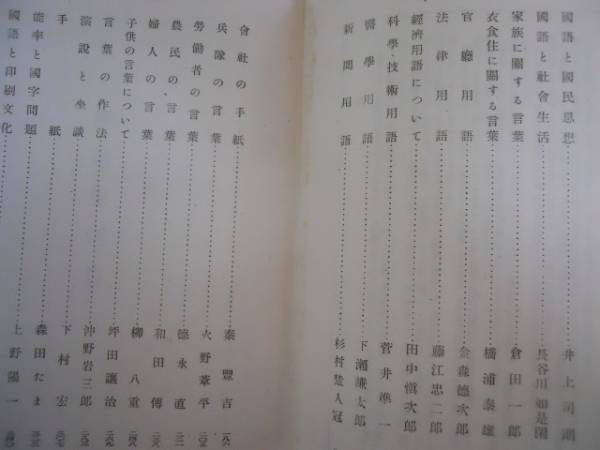 國語と國民思想………井上司朗
國語と社會生活………長谷川如是閑
家族に關する言葉………倉田一郎
衣食住に關する言葉………橋浦泰雄
官廳用語………金森德次郎
法律用語………藤江忠二郎
經濟用語について………田中愼次郎
科學・技術用語………菅井準一
醫學用語………下瀨謙太郎
新聞用語………杉村楚人冠
會社の手紙………秦豐吉
兵隊の言葉………火野葦平
勞働者の言葉………德永直
農民の言葉………和田傳
婦人の言葉………柳八重
子供の言葉について………坪田讓治
言葉の作法………沖野岩三郎
演說と坐談………下村宏
手紙………森田たま
能率と國字問題………上野陽一
國語と印刷文化